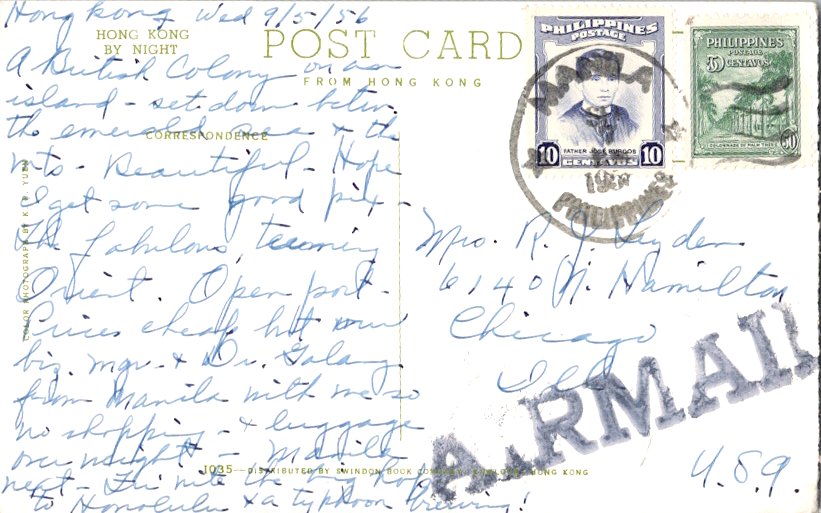 Hong Kong Wed 9/5/56
HONG KONG
BY NIGHT
POST CARD
FROM HONG KONG
CORRESPONDENCE
A British Colony on an
island - set down between
the emerald sea & the
mts - Beautiful - Hope
I get some good pix -
The fabulous, teeming
Orient. Open port -
Prices cheap but our
biz. mgr. & Dr. Galang
from Manila with me so
no shopping - & luggage
over weight - Manila
next - Fri nite the big hop
to Honolulu & a typhoon brewing!
COLOR PHOTOGRAPH BY K. W. YUEN
1035—DISTRIBUTED BY SWINDON BOOK COMPANY, HONG KONG
PHILIPPINES
POSTAGE
10 FATHER JOSE BURGOS 10
CENTAVOS
PHILIPPINES
POSTAGE
50 CENTAVOS
COLONNADE OF PALM TREES
50
MANILA
PHILIPPINES
Mrs. R. J. Lyden
6140 N. Hamilton
Chicago
Ill
AIRMAIL
U.S.A.